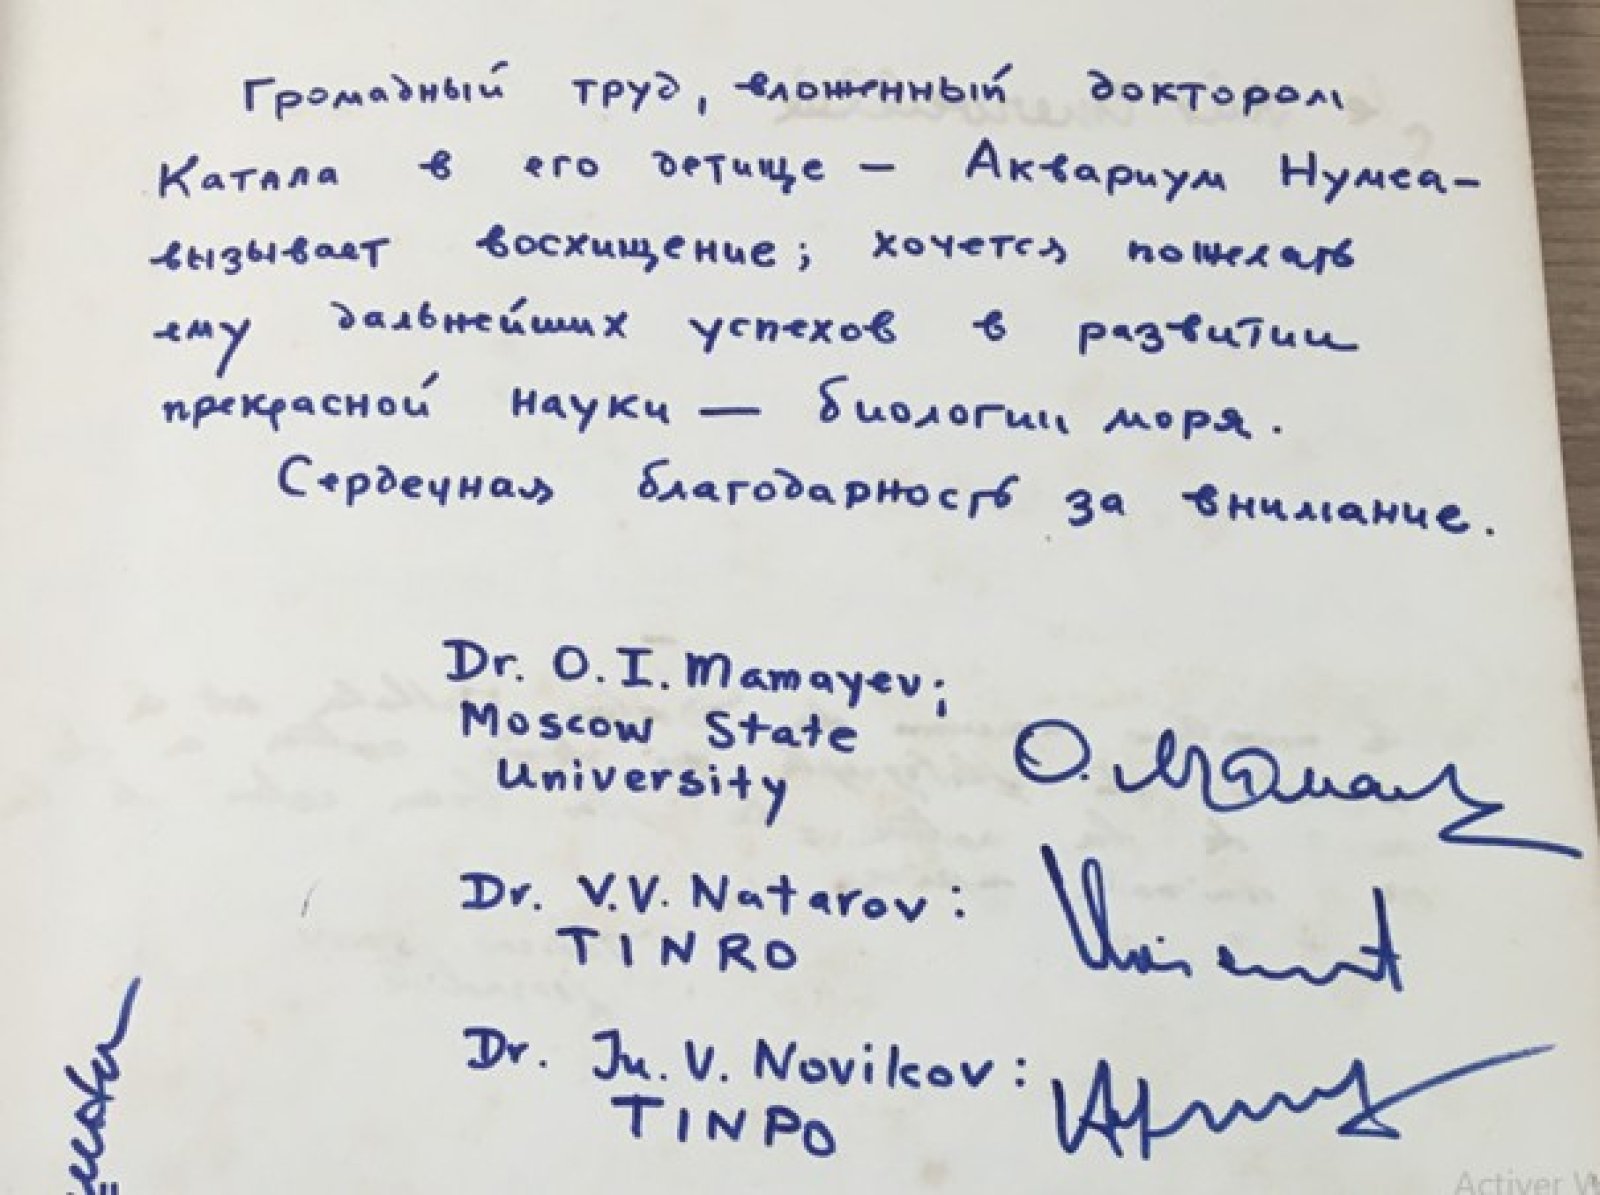 Громадный труд, вложенный доктором
Катала в его детище — Аквариум Нумеа—
вызывает восхищение; хочется пожелать
ему дальнейших успехов в развитии
прекрасной науки — биологии моря.
Сердечная благодарность за внимание.
Dr. O. I. Mamayev;
Moscow State
University
О. Мамаев
Dr. V.V. Natarov:
TINRO
Dr. Ju. V. Novikov:
TINPO
Activer W